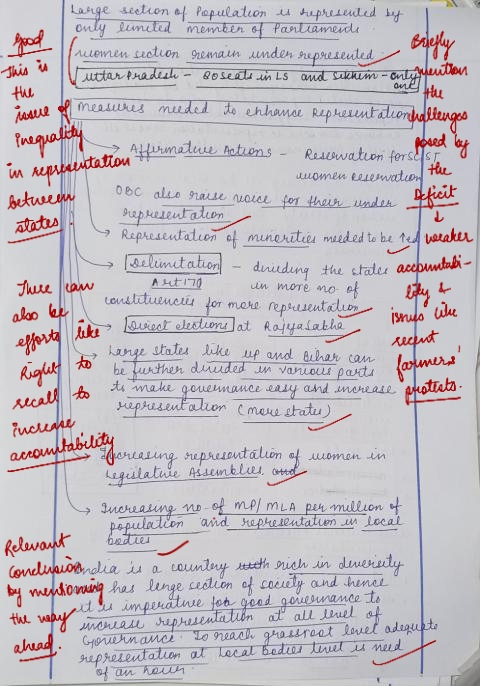 Large section of Population is represented by
only limited member of Parliaments
women section remain under represented.
Uttar Pradesh - 80 seats in LS and Sikkim - only
one
Measures needed to enhance Representation
Affirmative Actions - Reservation for SC ST
women Reservation
OBC also raise voice for their under
representation
Representation of minorities needed to be ↑ed
Delimitation - dividing the states
Art 170 in more no. of
constituencies for more representation
Direct elections at Rajya Sabha
Large states like UP and Bihar can
be further divided in various parts
to make governance easy and increase
representation (more states)
Increasing representation of women in
Legislative Assemblies.
Increasing no. of MP/MLA per million of
population and representation in local
bodies
India is a country rich in diversity
has large section of society and hence
it is imperative for good governance to
increase representation at all level of
Governance. To reach grassroot level adequate
representation at Local bodies level is need
of an hour.
Good
This is
the
issue of
inequality
in representation
between
states.
There can
also be
efforts like
Right to
recall to
increase
accountability
Relevant
Conclusion
by mentioning
the way
ahead.
Briefly
mention
the
challenges
posed by
the
Deficit
↓
weaker
accountabi-
lity &
issues like
recent
farmers'
protests.